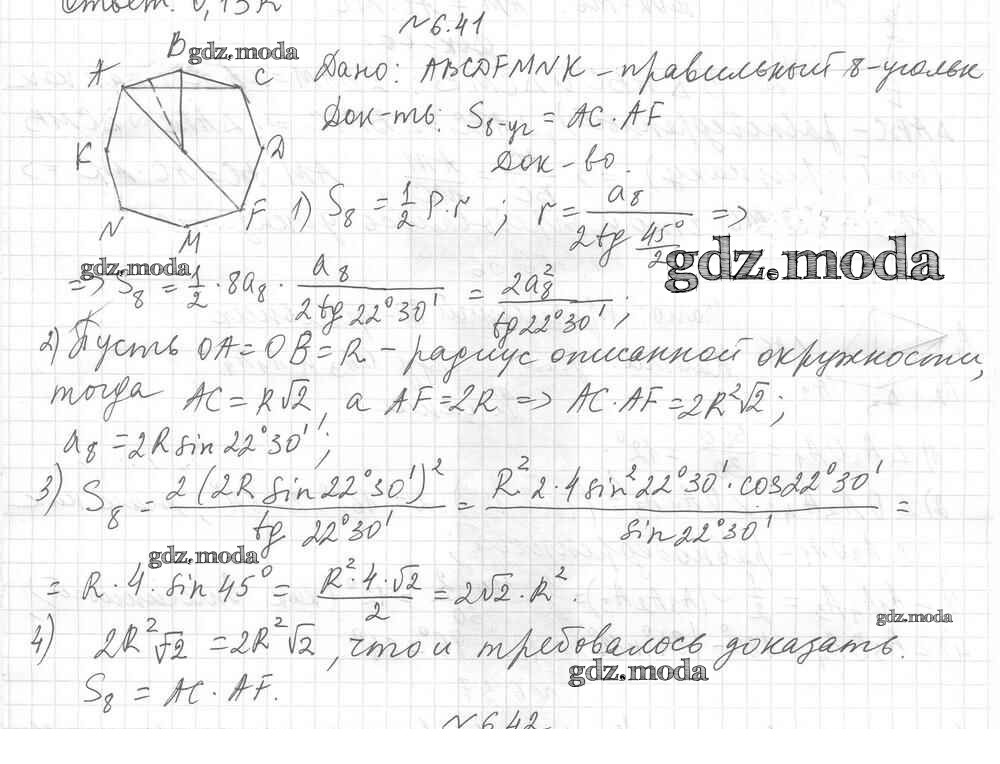 Ответ: 0,13R
№6.41
B gdz.moda
A C Дано: ABCDFMNK - правильный 8-угольн
Док-ть: S8-уг = AC · AF
K D Док-во.
N M F 1) S₈ = 1/2 P·r ; r = a₈ / (2 tg 45°/2) =>
gdz.moda
gdz.moda
=> S₈ = 1/2 · 8a₈ · a₈ / (2 tg 22°30') = 2a₈² / tg 22°30' ;
2) Пусть OA = OB = R - радиус описанной окружности,
тогда AC = R√2, а AF = 2R => AC · AF = 2R²√2 ;
a₈ = 2R sin 22°30' ;
3) S₈ = 2(2R sin 22°30')² / tg 22°30' = R² 2·4 sin² 22°30' · cos 22°30' / sin 22°30' =
gdz.moda
= R · 4 · sin 45° = R²·4·√2 / 2 = 2√2 · R².
gdz.moda
4) 2R²√2 = 2R²√2, что и требовалось доказать.
gdz.moda
S₈ = AC · AF.
№6.42.